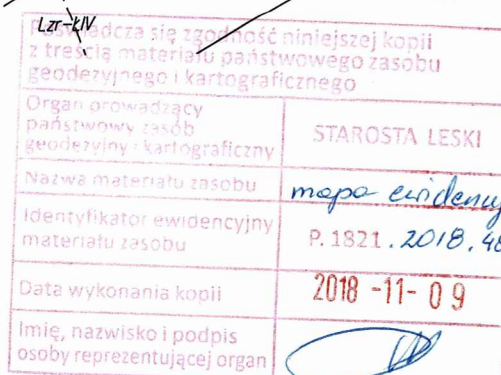 Lzr-kIV
Poświadcza się zgodność niniejszej kopii
z treścią materiału państwowego zasobu
geodezyjnego i kartograficznego
Organ prowadzący
państwowy zasób
geodezyjny i kartograficzny
STAROSTA LESKI
Nazwa materiału zasobu
mapa ewidency
Identyfikator ewidencyjny
materiału zasobu
P. 1821.2018.48
Data wykonania kopii
2018 -11- 09
Imię, nazwisko i podpis
osoby reprezentującej organ